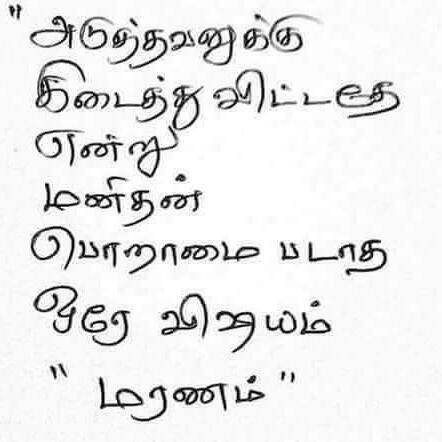 "அடுத்தவனுக்கு
கிடைத்து விட்டதே
என்று
மனிதன்
பொறாமை படாத
ஒரே விஷயம்
"மரணம்"